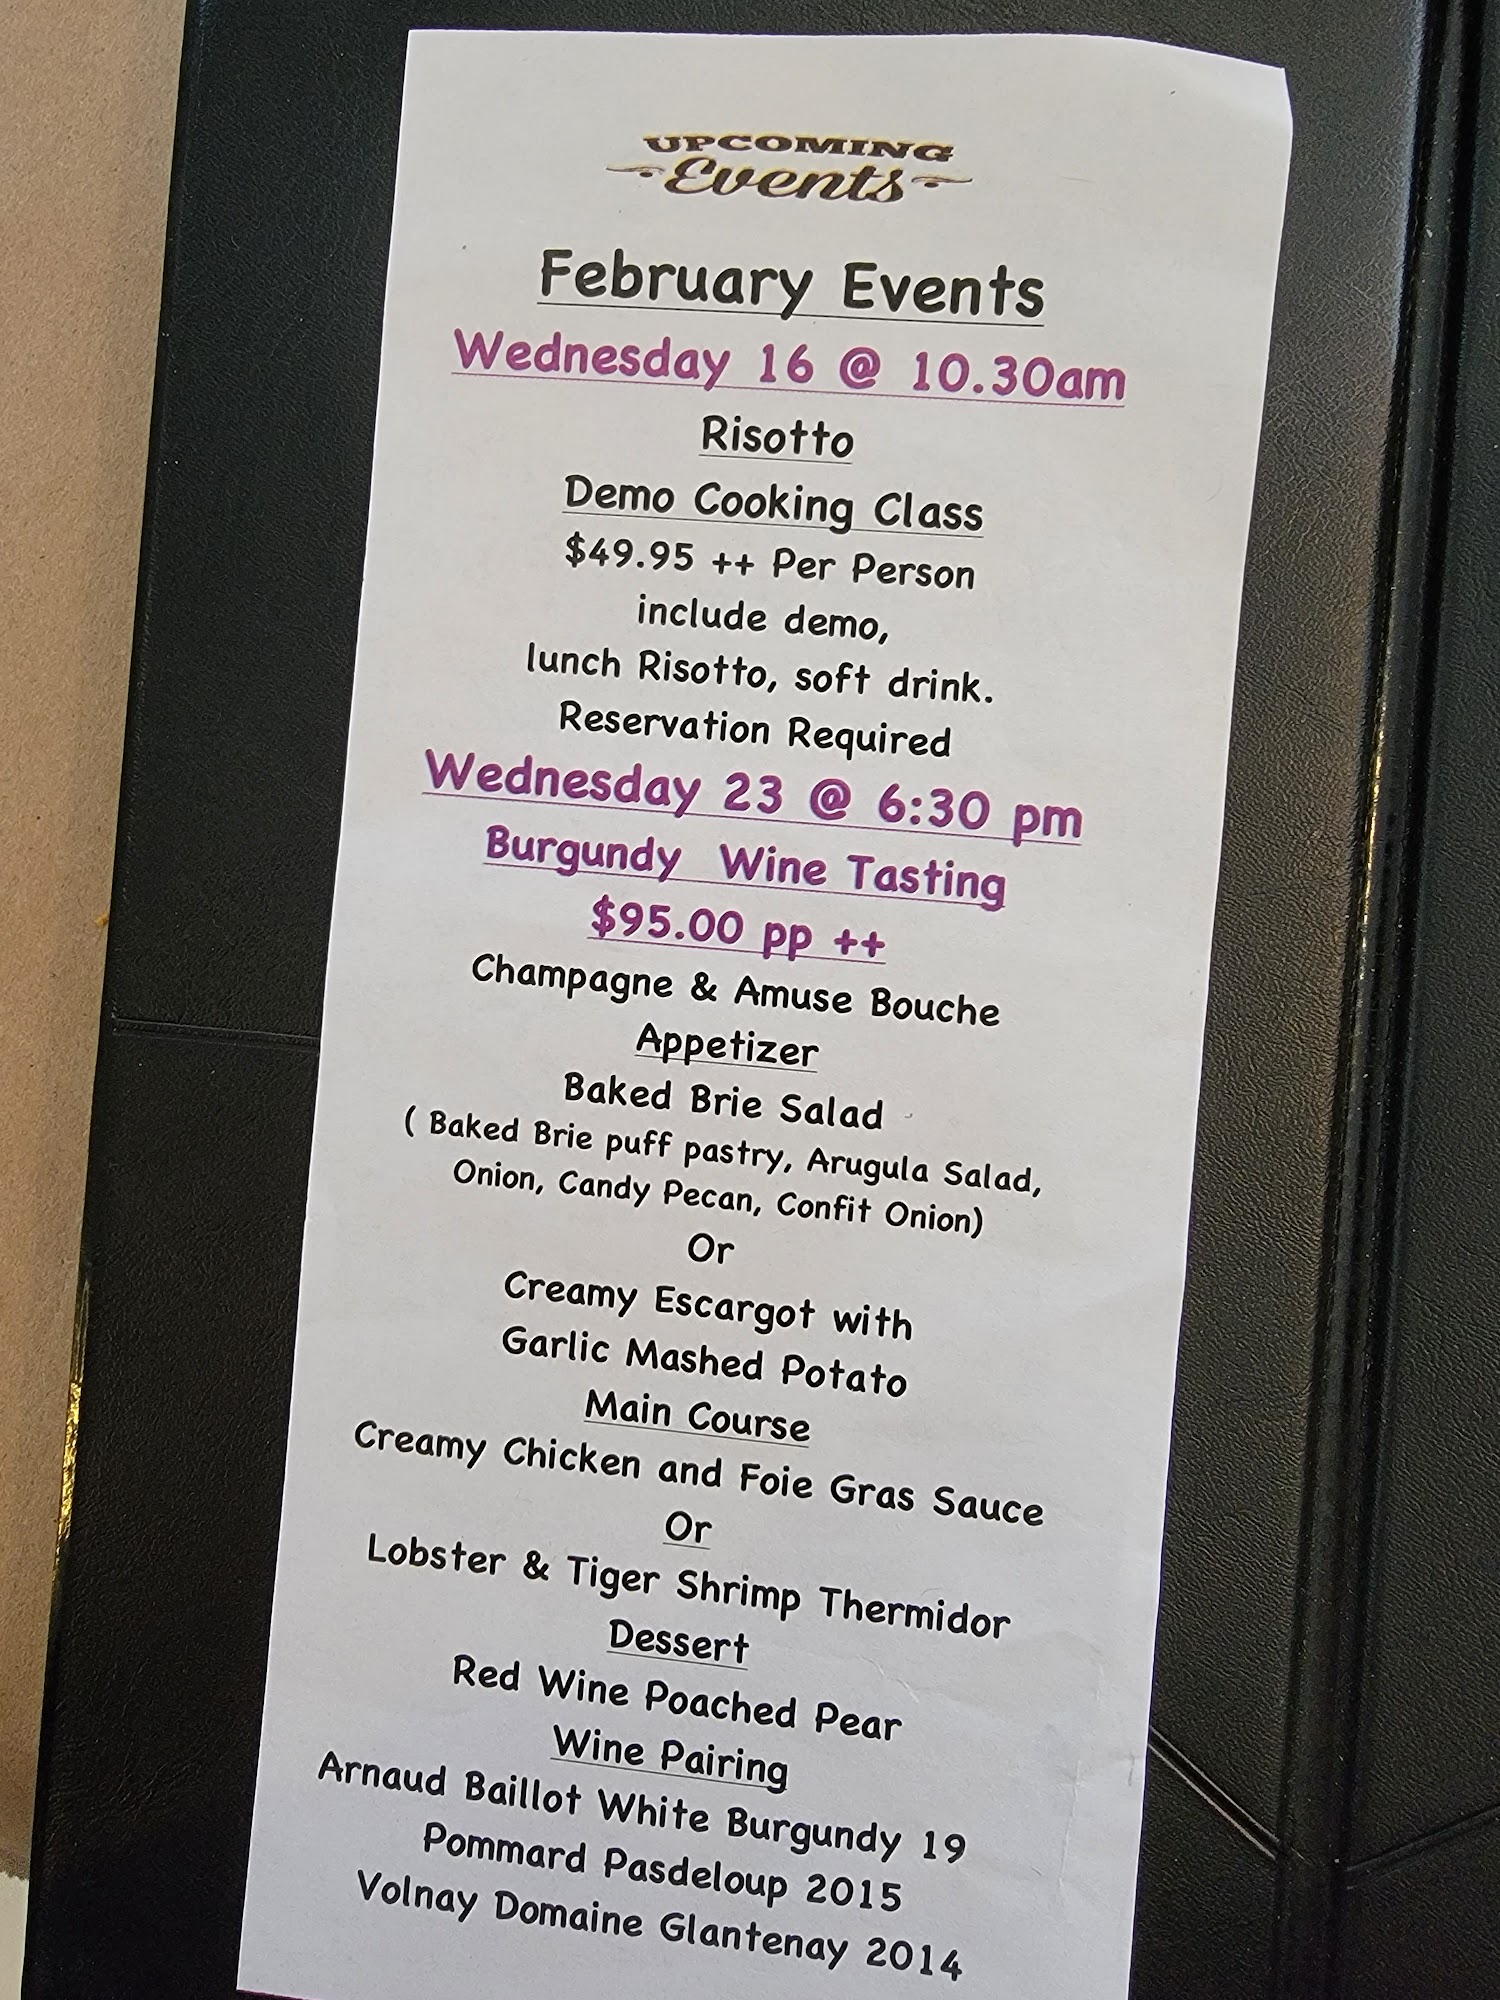 UPCOMING
Events
February Events
Wednesday 16 @ 10.30am
Risotto
Demo Cooking Class
$49.95 ++ Per Person
include demo,
lunch Risotto, soft drink.
Reservation Required
Wednesday 23 @ 6:30 pm
Burgundy Wine Tasting
$95.00 pp ++
Champagne & Amuse Bouche
Appetizer
Baked Brie Salad
( Baked Brie puff pastry, Arugula Salad,
Onion, Candy Pecan, Confit Onion)
Or
Creamy Escargot with
Garlic Mashed Potato
Main Course
Creamy Chicken and Foie Gras Sauce
Or
Lobster & Tiger Shrimp Thermidor
Dessert
Red Wine Poached Pear
Wine Pairing
Arnaud Baillot White Burgundy 19
Pommard Pasdeloup 2015
Volnay Domaine Glantenay 2014